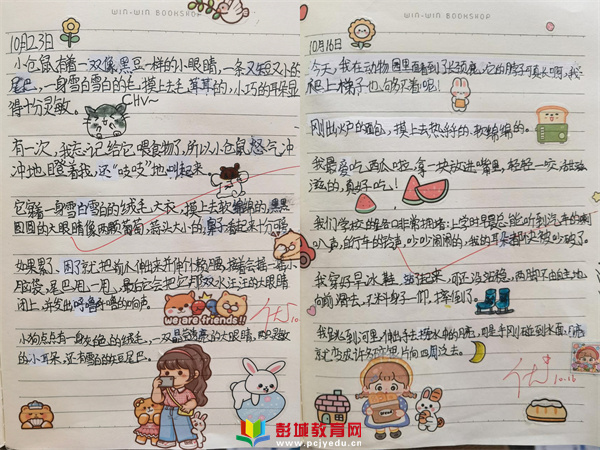 WIN-WIN BOOKSHOP
10月23日
小仓鼠有着一双像黑豆一样的小眼睛,一条又短又小的
尾巴,一身雪白雪白的毛,摸上去毛茸茸的,小巧的耳朵显
得十分灵敏。
CHV~
有一次,我忘记给它喂食物了,所以小仓鼠怒气冲
冲地瞪着我,还“吱吱”地叫起来。
它穿着一身雪白雪白的绒毛大衣,摸上去软绵绵的,黑黑
圆圆的大眼睛像两颗葡萄,箭头大小的,鼻子看起来十分可爱
如果累了、困了就把前爪伸出来并伸个懒腰,接着会摇一摇小
脑袋,尾巴甩一甩,最后它会把它那双水汪汪的大眼睛
闭上,并发出呼噜呼噜的响声。
we are friends!!
优
10.
小狗点点有一身灰色的绒毛,一双晶莹透亮的大眼睛,
的小耳朵,还有雪白的短尾巴。
WIN-WIN BOOKSHOP
10月16日
今天,我在动物园里面看到了长颈鹿,它的脖子可真长啊,我
爬上梯子也够不着呢!
刚出火炉的面包,摸上去热乎乎的、软绵绵的。
我最爱吃西瓜啦,拿一块放进嘴里,轻轻一咬,甜滋
滋的,真好吃!
我们学校的路口非常拥堵,上学时早总能听到汽车的喇
叭声,自行车的铃声,吵吵闹闹的,我的耳朵都快被吵破了。
我穿好旱冰鞋,站了起来,可还没站稳,两脚不由自主地
向前滑去,不料身子一仰,摔倒了。
我跑到河里,伸出手去捞水中的月亮,可是手刚碰到水面,月亮
就变成许多碎片向四周散去。
优
10.16
彭城教育网
www.pcjyedu.cn